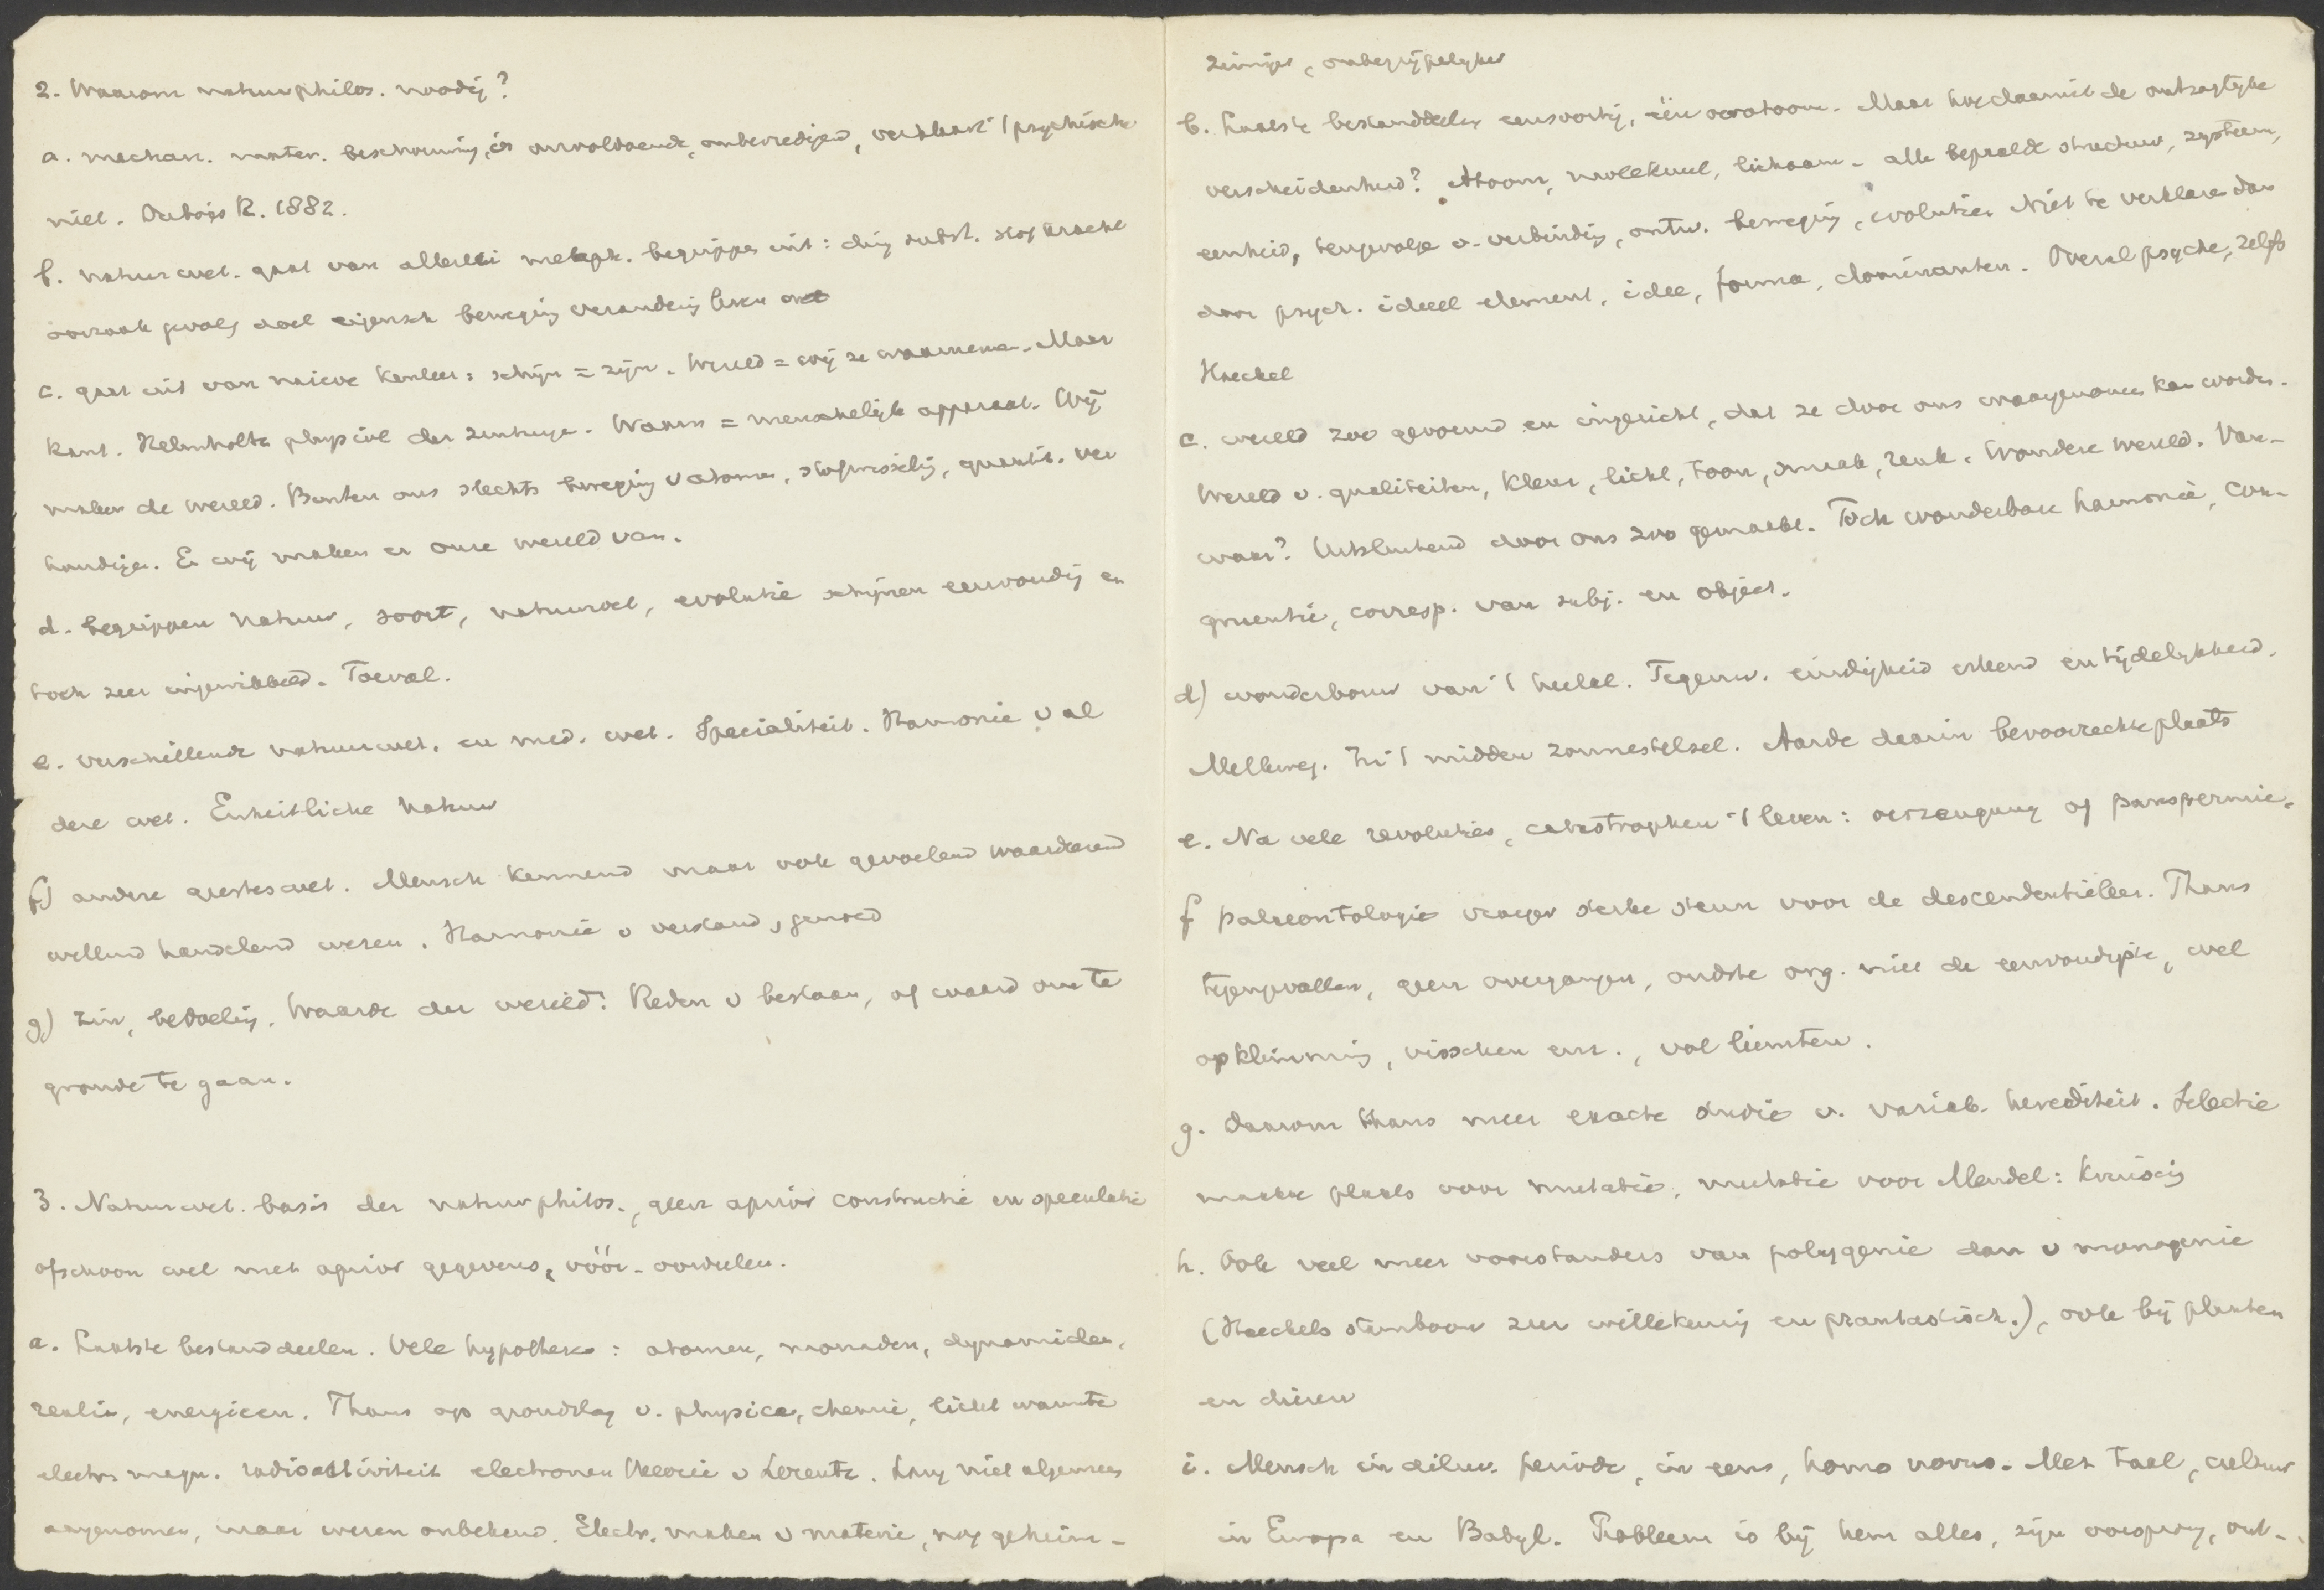 2. Waarom natuurphilos. noodig?
a. mechan. mater. beschouwing is onvoldoende, onbevredigend, verklaart 't psychische
niet. Dubois R. 1882.
b. natuurwet. gaat van allerlei metaph. begrippen uit: ding subst. stof kracht
oorzaak gevolg doel eigensch beweging verandering leven
c. gaat uit van naieve kenleer: schijn = zijn. Wereld = wij ze waarnemen. Maar
Kant. Helmholtz physiol der zintuigen. Waarn = menschelijk apparaat. Wij
maken de wereld. Buiten ons slechts beweging v atomen, stofwisseling, quantit. ver
houdingen. En wij maken er onze wereld van.
d. begrippen natuur, soort, natuurwet, evolutie schijnen eenvoudig en
toch zeer ingewikkeld. Toeval.
e. verschillende natuurwet. en med. wet. Specialiteit. Harmonie v al
deze wet. Einheitliche Natuur
f) andere geesteswet. Mensch kennend maar ook gevoelend waardeerend
willend handelend wezen. Harmonie v verstand, gemoed
g) Zin, bedoeling. Waarde der wereld: Reden v bestaan, of waard om te
gronde te gaan.
3. Natuurwet. basis der natuurphilos., geen aprior constructie en speculatie
ofschoon wel met aprior gegevens, vóór-oordeelen.
a. Laatste bestanddeelen. Vele hypothesen: atomen, monaden, dynamiden,
realia, energieen. Thans op grondslag v. physica, chemie, licht warmte
electr. magn. radioactiviteit electronen theorie v Lorentz. Lang niet algemeen
aangenomen, maar wezen onbekend. Electr. maken v materie, nog geheim-
zinniger, onbegrijpelijker
b. Laatste bestanddeelen eensoortig, één oeratoom. Maar hoe daaruit de ontzaglijke
verscheidenheid? Atoom, molekuul, lichaam - alle bepaalde structuur, systeem,
eenheid, tengevolge v. verbinding, ontw. beweging, evolutie. Niet te verklaren dan
door psych. ideeel element, idee, forma, dominanten. Overal psyche, zelfs
Haeckel
c. wereld zoo gevormd en ingericht, dat ze door ons waargenomen kan worden.
Wereld v. qualiteiten, kleur, licht, toon, smaak, reuk. Wondere wereld. Van-
waar? Uitsluitend door ons zoo gemaakt. Toch wonderbare harmonie, con-
gruentie, corresp. van subj. en object.
d) wonderbouw van 't heelal. Tegenw. eindigheid erkend en tijdelijkheid.
Melkweg. In 't midden zonnestelsel. Aarde daarin bevoorrechte plaats
e. Na vele revoluties, catastrophen 't leven: oerzeugung of panspermie.
f palaeontologie vroeger sterke steun voor de descendentieleer. Thans
tegengevallen, geen overgangen, oudste org. niet de eenvoudigste, wel
opklimming, visschen enz., vol liemten.
g. Daarom thans meer exacte studie v. variab. herediteit. Selectie
maakte plaats voor mutatie, mutatie voor Mendel: kruising
h. Ook veel meer voorstanders van polygenie dan v monogenie
(Haeckels stamboom zeer willekeurig en phantastisch.), ook bij planten
en dieren
i. Mensch in diluv. periode, in eens, homo novus. Met taal, cultuur
in Europa en Babyl. Probleem is bij hem alles, zijn oorsprong, ont-